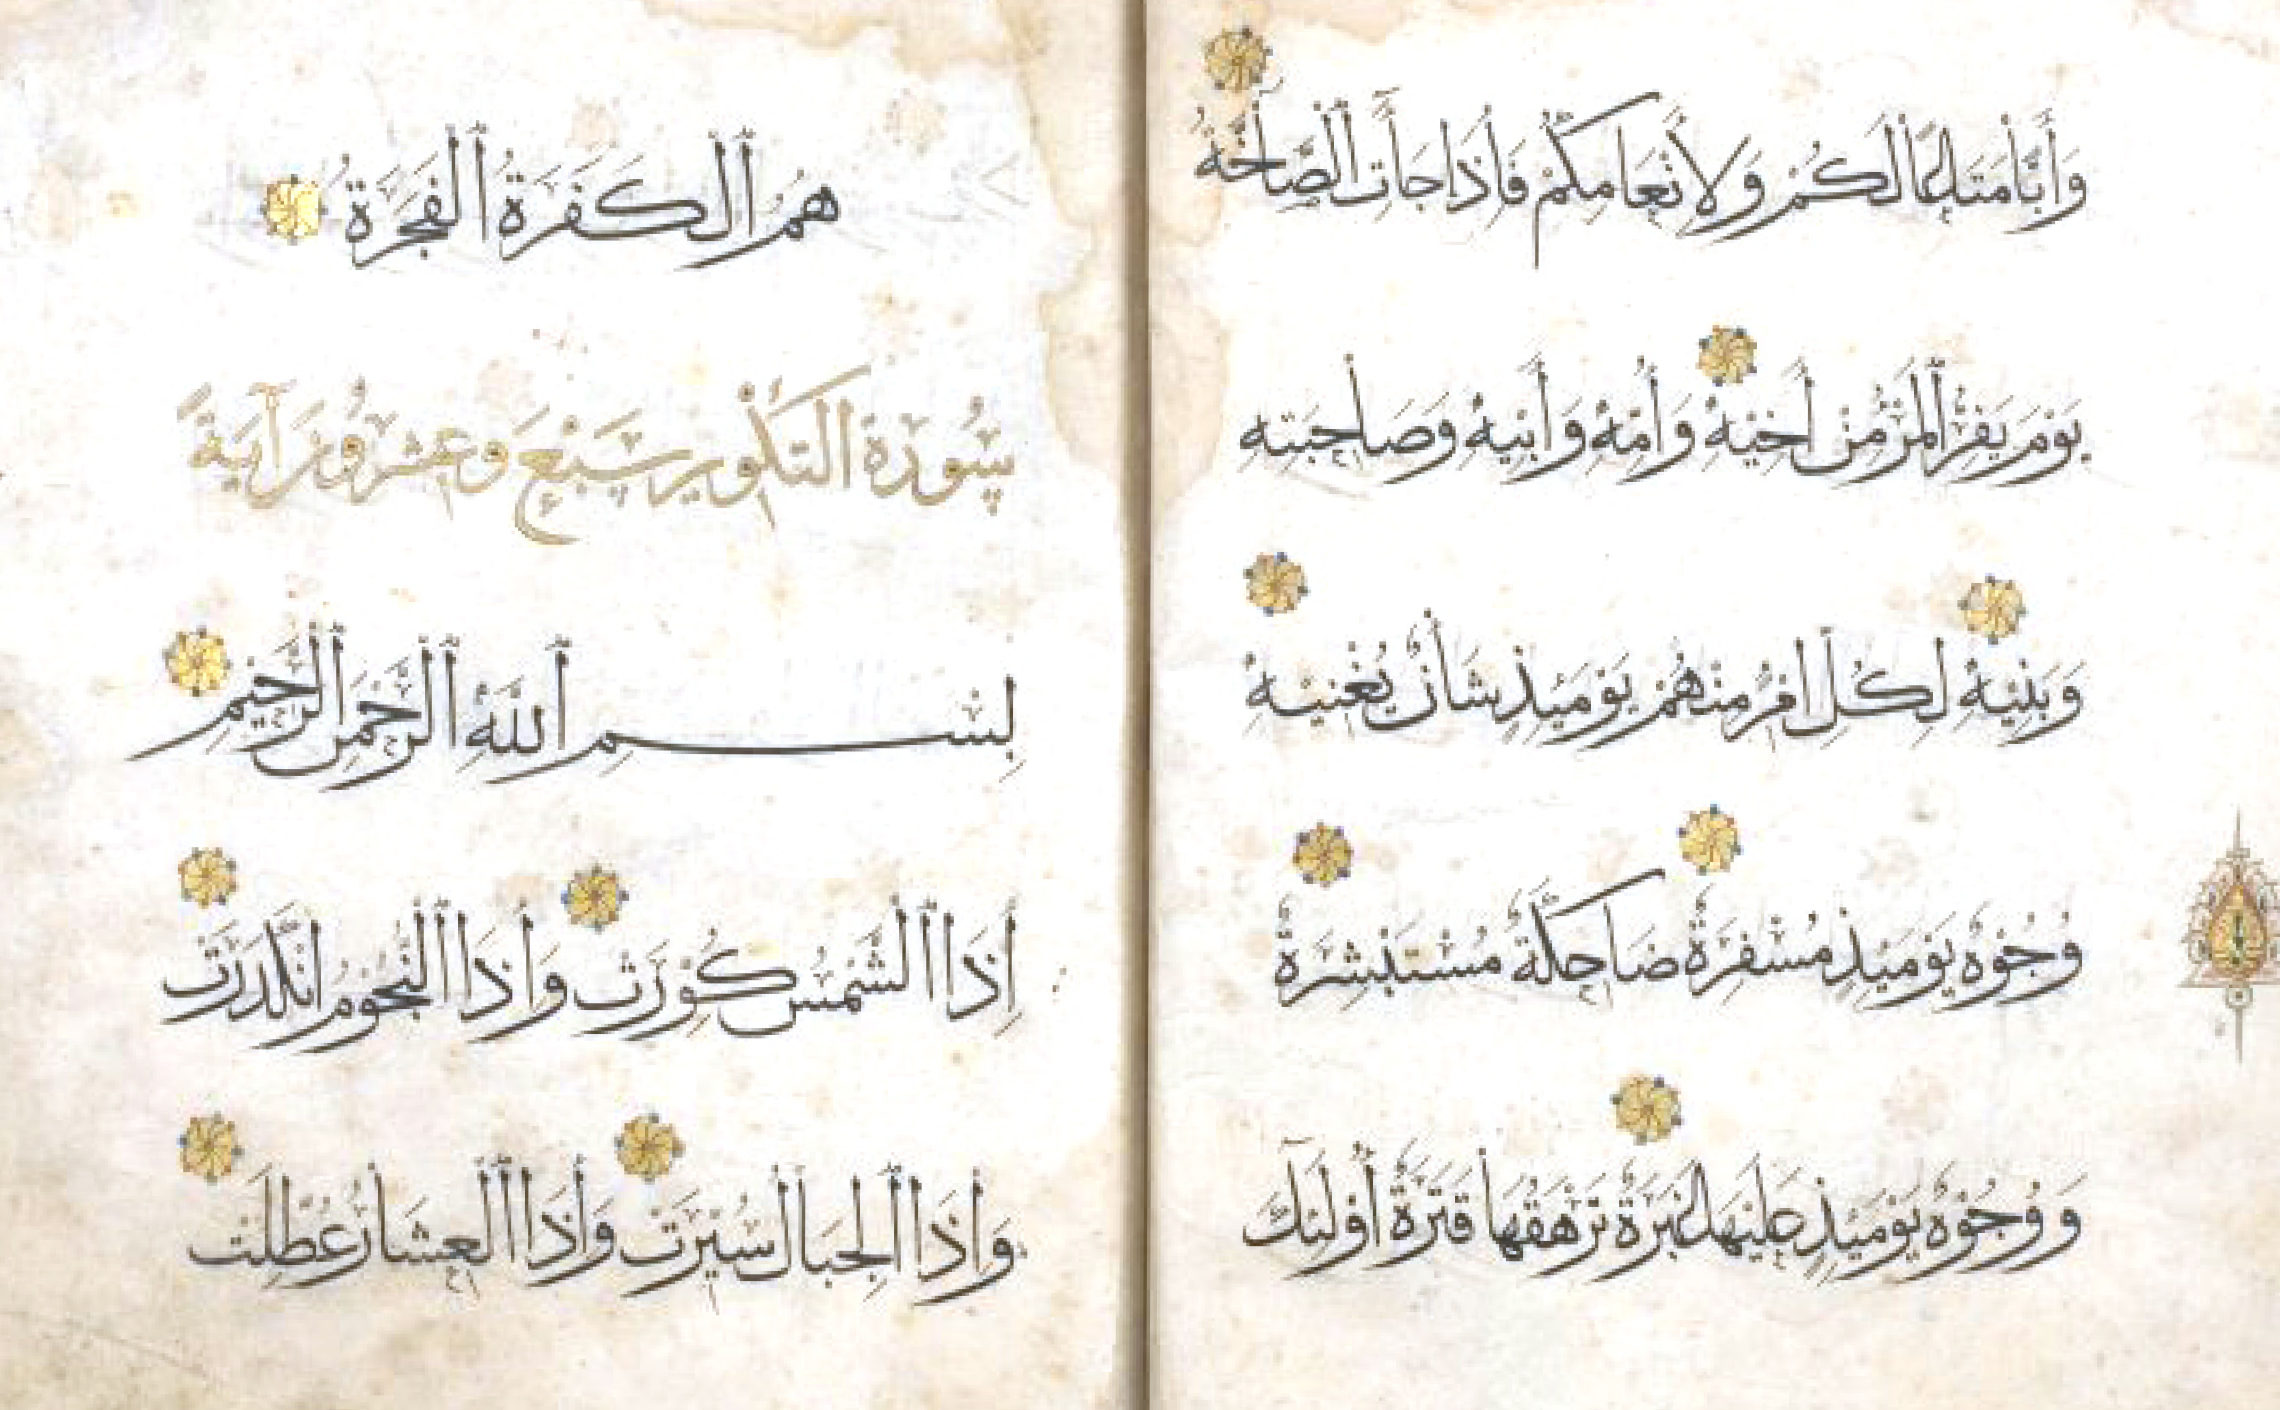 وَأَبًّا مَتَاعًا لَكُمْ وَلِأَنْعَامِكُمْ فَإِذَا جَآءَتِ ٱلصَّاخَّةُ
يَوْمَ يَفِرُّ ٱلْمَرْءُ مِنْ أَخِيْهِ وَأُمِّهِ وَأَبِيْهِ وَصَاحِبَتِهِ
وَبَنِيْهِ لِكُلِّ امْرِئٍ مِنْهُمْ يَوْمَئِذٍ شَأْنٌ يُغْنِيْهِ
وُجُوْهٌ يَوْمَئِذٍ مُسْفِرَةٌ ضَاحِكَةٌ مُسْتَبْشِرَةٌ
وَوُجُوْهٌ يَوْمَئِذٍ عَلَيْهَا غَبَرَةٌ تَرْهَقُهَا قَتَرَةٌ أُوْلَٰئِكَ
هُمُ ٱلْكَفَرَةُ ٱلْفَجَرَةُ
سُوْرَةُ التَّكْوِيرِ سَبْعَ وَعِشْرُونَ آيَةً
بِسْمِ ٱللَّهِ ٱلرَّحْمَنِ ٱلرَّحِيْمِ
إِذَا ٱلشَّمْسُ كُوِّرَتْ وَإِذَا ٱلنُّجُوْمُ انْكَدَرَتْ
وَإِذَا ٱلْجِبَالُ سُيِّرَتْ وَإِذَا ٱلْعِشَارُ عُطِّلَتْ